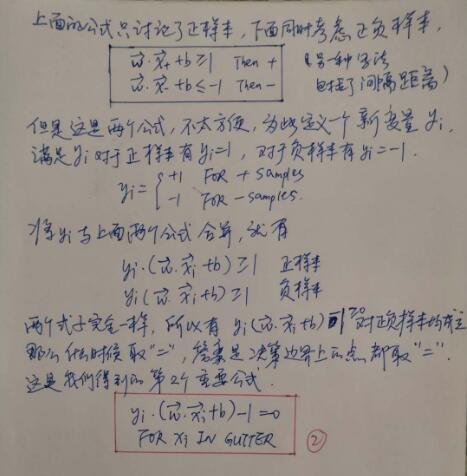 上面的公式只讨论了正样本，下面同时考虑正负样本，
w⃗·x⃗₊+b≥1 Then + （另一种写法
w⃗·x⃗₋+b≤-1 Then - 包括了间隔距离）
但是这是两个公式，不太方便，为此定义一个新变量 yi，
满足 yi 对于正样本有 yi=1，对于负样本有 yi=-1.
yi= { +1 FOR + samples
-1 FOR - samples.
将 yi 与上面两个公式合并，就有
yi·(w⃗·x⃗i+b)≥1 正样本
yi(w⃗·x⃗i+b)≥1 负样本
两个式子完全一样，所以有 yi(w⃗·x⃗i+b)-1≥0 对正负样本均成立
那么什么时候取"="，答案是决策边界上的点都取"=".
这是我们得到的第2个重要公式.
yi·(w⃗·x⃗i+b)-1=0
FOR xi IN GUTTER ②